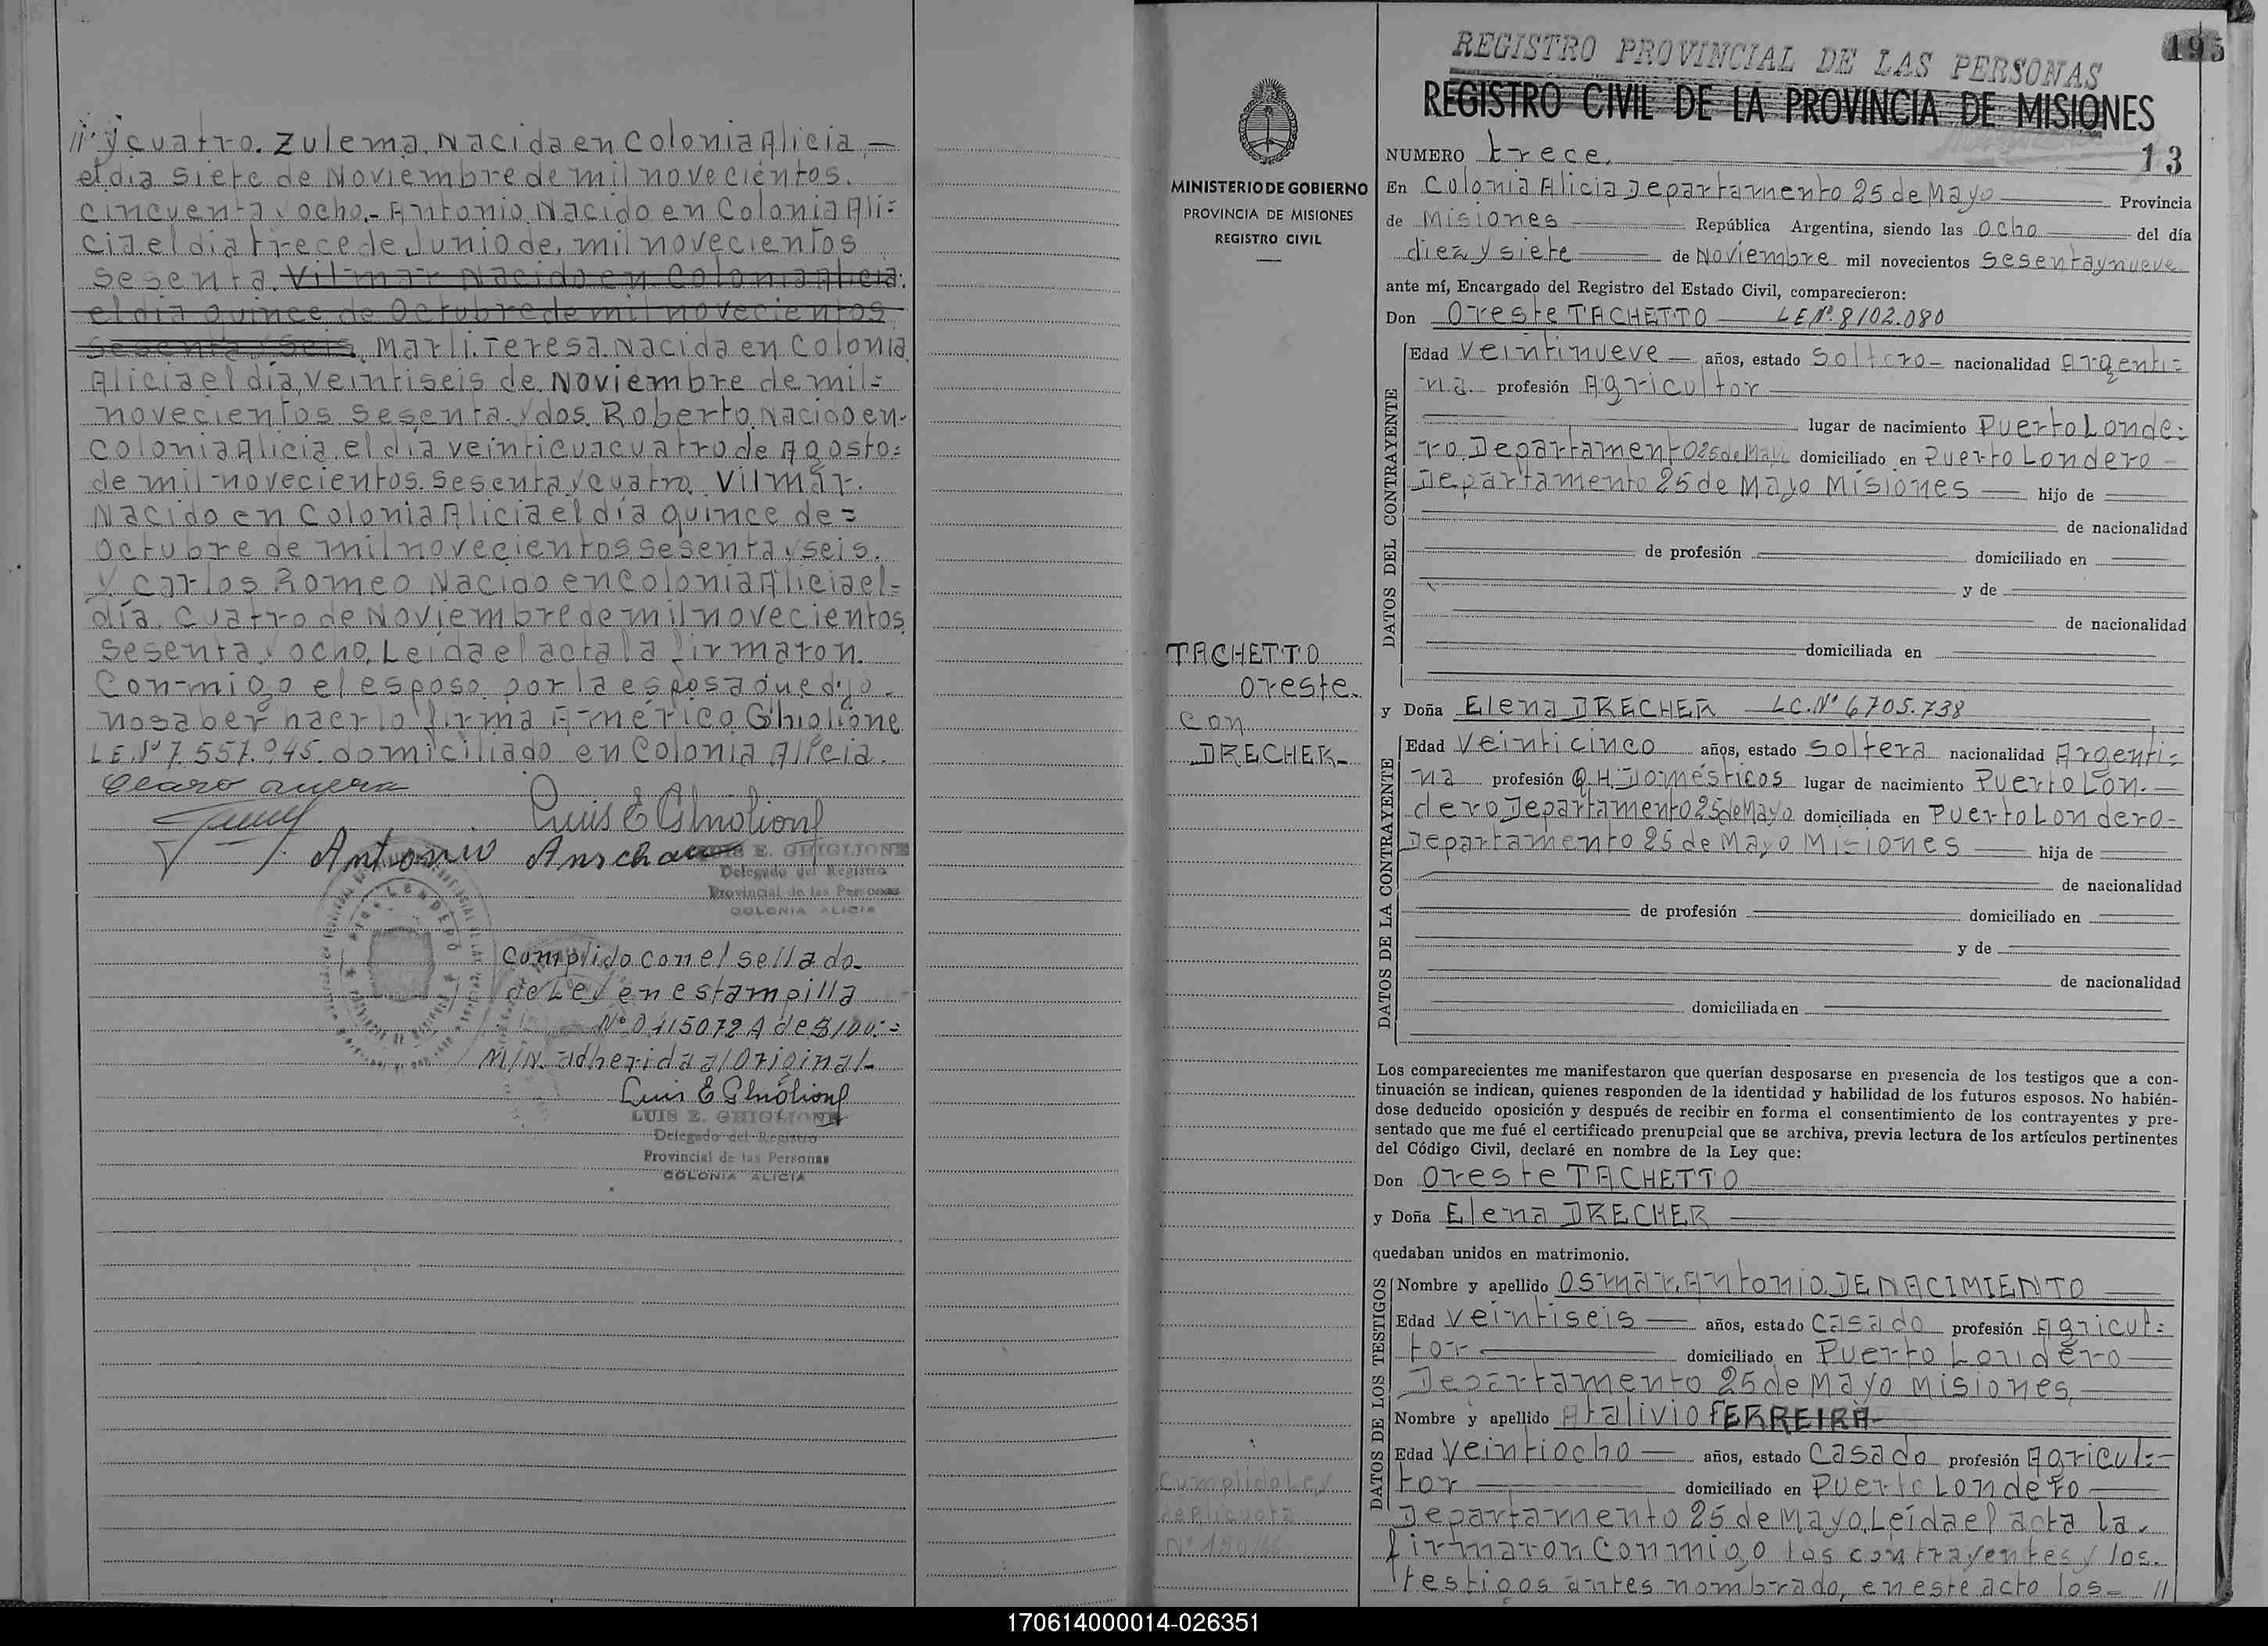 // y cuatro. Zulema. Nacida en Colonia Alicia.—
el día siete de Noviembre de mil novecientos.
cincuenta y ocho.- Antonio. Nacido en Colonia Ali=
cia el día trece de Junio de. mil novecientos
sesenta. Vilmar Nacido en Colonia Alicia.
el día quince de Octubre de mil novecientos
sesenta y seis. Marli. Teresa. Nacida en Colonia
Alicia el día, veintiseis de. Noviembre de mil=
novecientos sesenta. y dos. Roberto. Nacido en.
Colonia Alicia. el día veinticuacuatro de Agosto=
de mil novecientos. sesenta y cuatro. Vilmar.
Nacido en Colonia Alicia el día quince de=
Octubre de mil novecientos sesenta y seis.
y Carlos Romeo Nacido en Colonia Alicia el=
día. Cuatro de Noviembre de mil novecientos
sesenta y ocho. Leida el acta la firmaron.
Con-migo el esposo. por la esposa que dijo.
no saber hacerlo firma Américo Ghiglione
L.E. Nº 7.557.945. domiciliado en Colonia Alicia.
Luis E Ghiglione
Antonio
LUIS E. GHIGLIONE
Delegado del Registro
Provincial de las Personas
COLONIA ALICIA
Cumplido con el sellado
de Ley en estampilla
Nº 0115072 A de $100.=
M/N. adherida al Original-
Luis E Ghiglione
LUIS E. GHIGLIONE
Delegado del Registro
Provincial de las Personas
COLONIA ALICIA
195
REGISTRO PROVINCIAL DE LAS PERSONAS
REGISTRO CIVIL DE LA PROVINCIA DE MISIONES
MINISTERIO DE GOBIERNO
PROVINCIA DE MISIONES
REGISTRO CIVIL
TACHETTO
Oreste.
Con
DRECHER-
Cumplido Ley
NUMERO trece. 13
En Colonia Alicia Departamento 25 de Mayo Provincia
de Misiones República Argentina, siendo las Ocho del día
diez y siete de Noviembre mil novecientos sesenta y nueve
ante mí, Encargado del Registro del Estado Civil, comparecieron:
Don Oreste TACHETTO LE Nº. 8102.080
DATOS DEL CONTRAYENTE
Edad Veintinueve años, estado Soltero nacionalidad Argenti=
na. profesión Agricultor
lugar de nacimiento Puerto Londe=
ro Departamento 25 de Mayo domiciliado en Puerto Londero
Departamento 25 de Mayo Misiones hijo de
de nacionalidad
de profesión domiciliado en
y de
de nacionalidad
domiciliada en
y Doña Elena DRECHER LC. Nº 6705.738
DATOS DE LA CONTRAYENTE
Edad Veinticinco años, estado Soltera nacionalidad Argenti=
na profesión Q.H. Domésticos lugar de nacimiento Puerto Lon.
dero Departamento 25 de Mayo domiciliada en Puerto Londero-
Departamento 25 de Mayo Misiones hija de
de nacionalidad
de profesión domiciliado en
y de
de nacionalidad
domiciliada en
Los comparecientes me manifestaron que querían desposarse en presencia de los testigos que a con-
tinuación se indican, quienes responden de la identidad y habilidad de los futuros esposos. No habién-
dose deducido oposición y después de recibir en forma el consentimiento de los contrayentes y pre-
sentado que me fué el certificado prenupcial que se archiva, previa lectura de los artículos pertinentes
del Código Civil, declaré en nombre de la Ley que:
Don Oreste TACHETTO
y Doña Elena DRECHER
quedaban unidos en matrimonio.
DATOS DE LOS TESTIGOS
Nombre y apellido Osmar. Antonio. DE NACIMIENTO
Edad Veintiseis años, estado Casado profesión Agricul=
tor domiciliado en Puerto Londero
Departamento 25 de Mayo Misiones
Nombre y apellido Atalivio FERREIRA
Edad Veintiocho años, estado Casado profesión Agricul=
tor domiciliado en Puerto Londero
Departamento 25 de Mayo. Leída el acta la.
firmaron Conmigo los contrayentes y los.
testigos antes nombrado, en este acto los= //
170614000014-026351